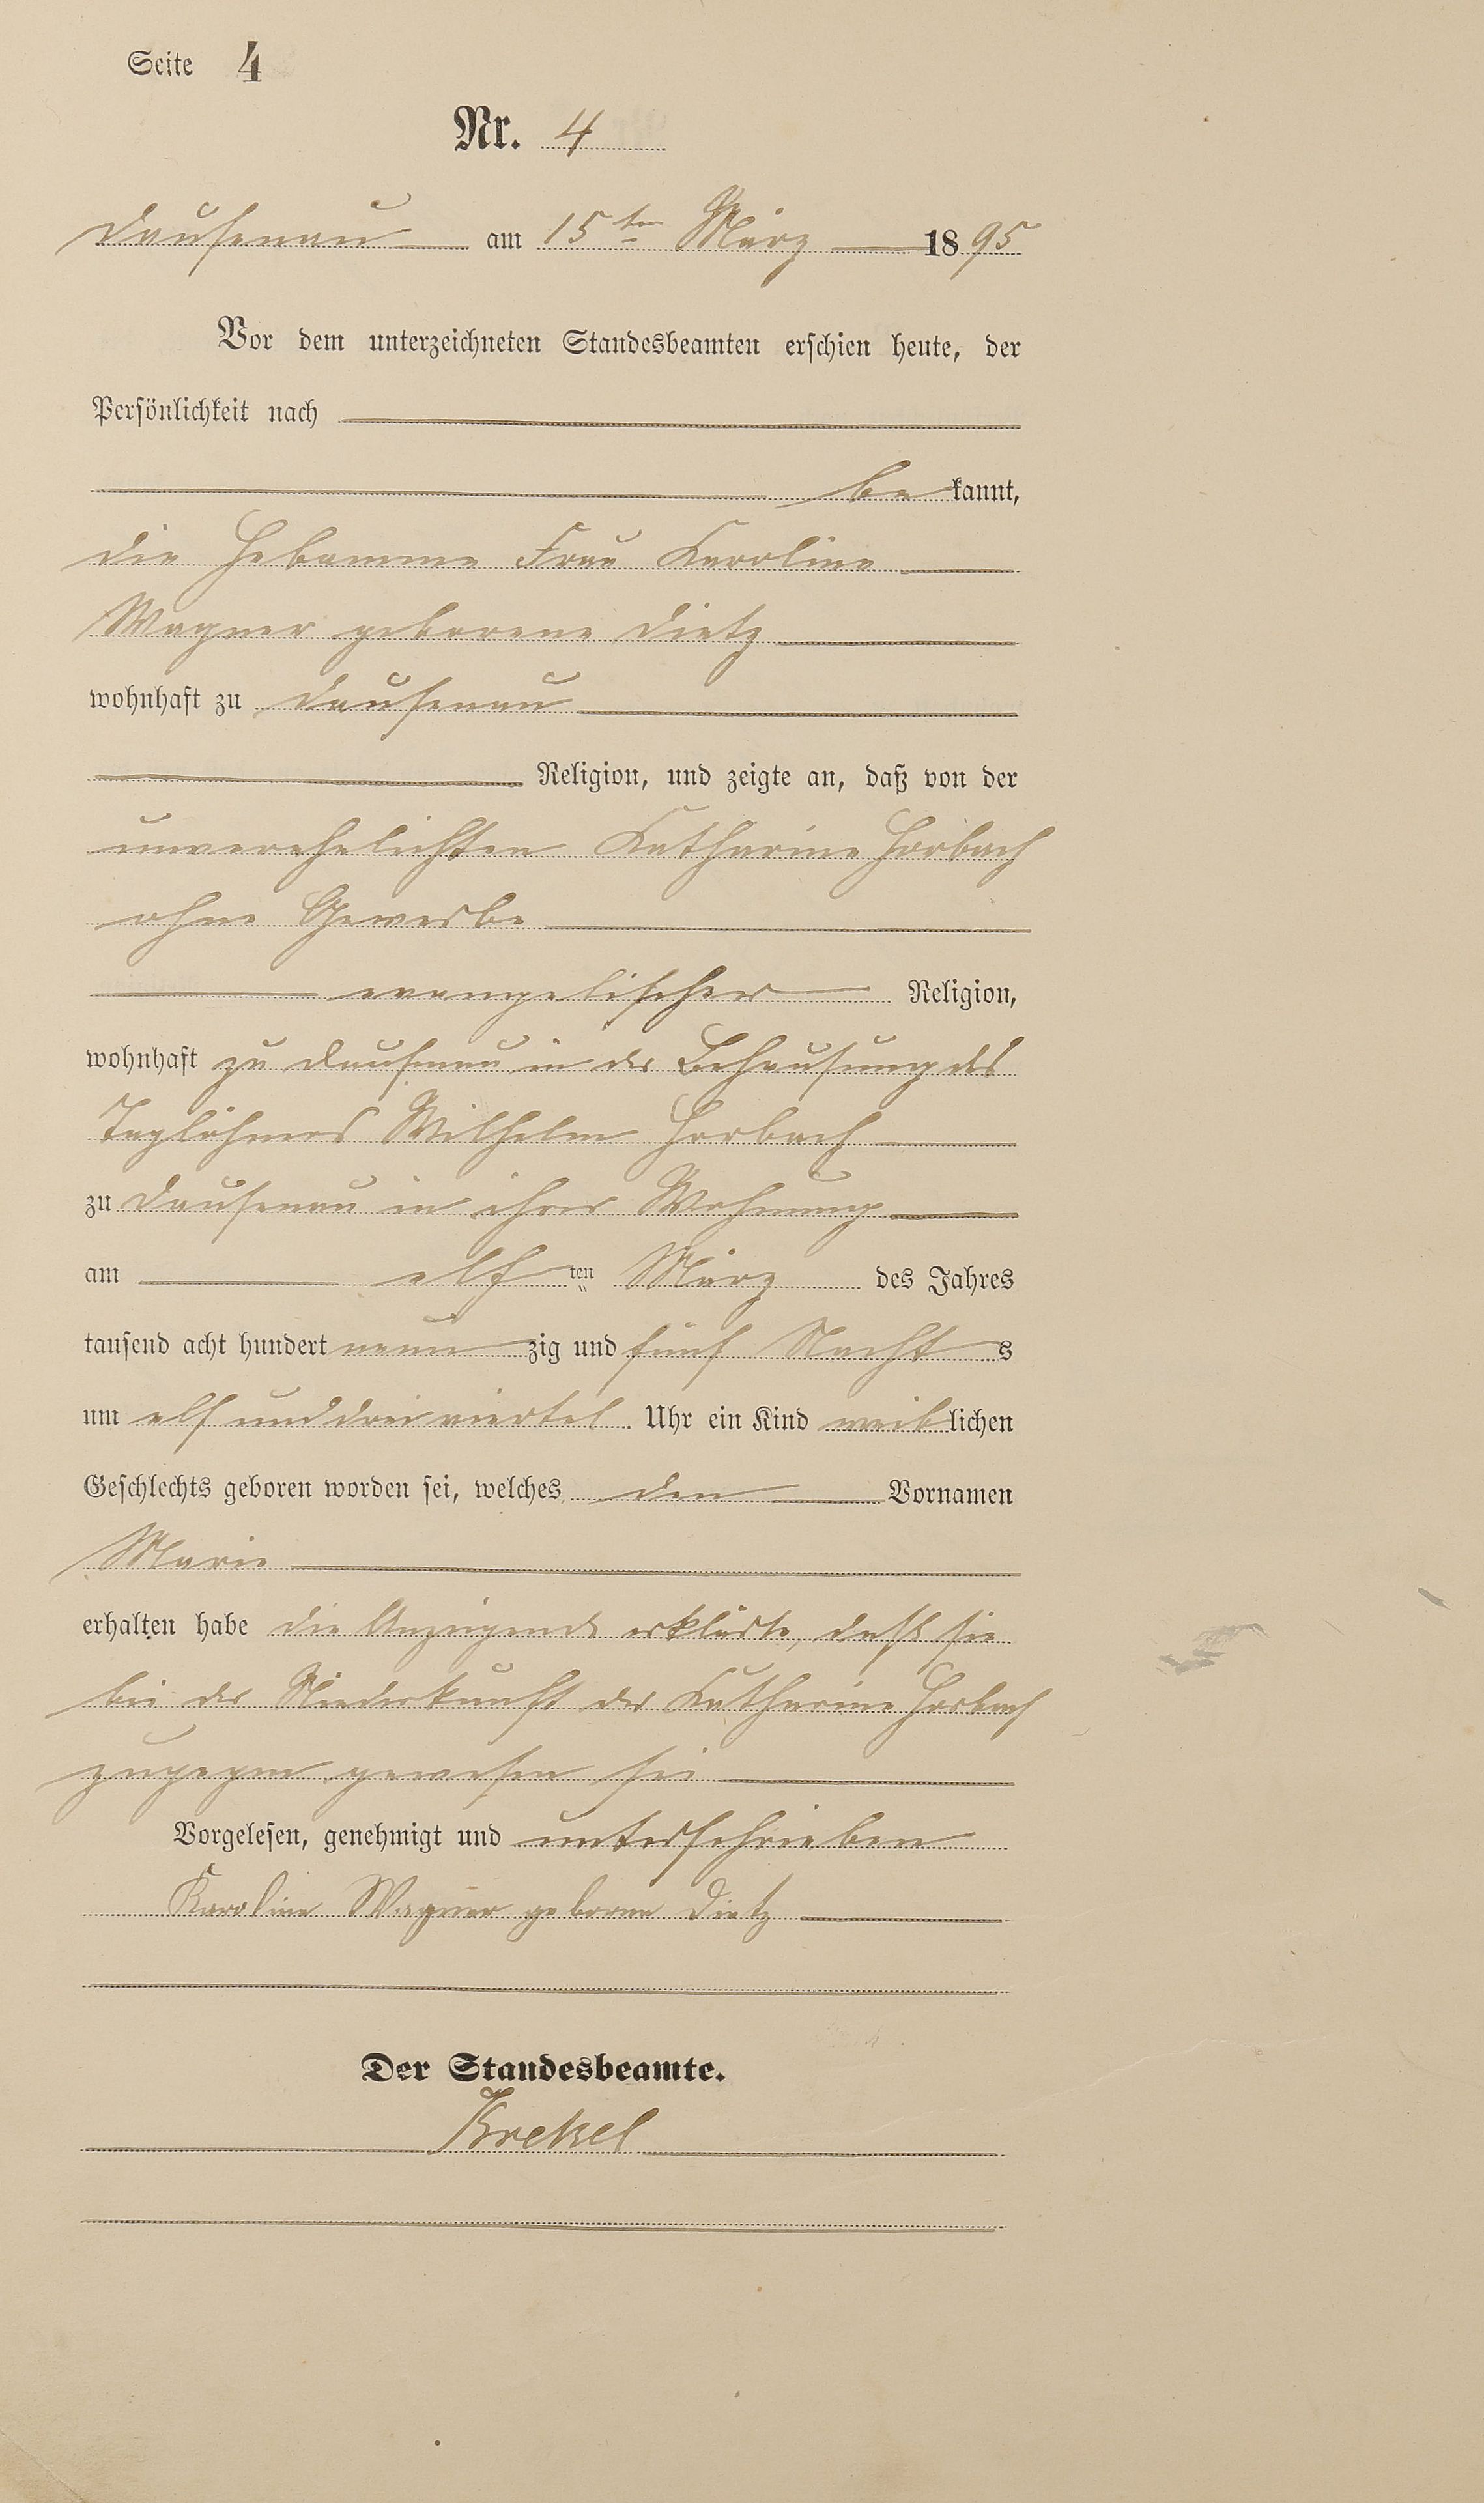 Seite 4
Nr. 4
Dausenau am 15ten März 1895
Vor dem unterzeichneten Standesbeamten erschien heute, der
Persönlichkeit nach
bekannt,
die Hebamme Frau Karoline
Wagner geborene Dietz
wohnhaft zu Dausenau
Religion, und zeigte an, daß von der
unverehelichten Katharine Horbach
ohne Gewerbe
evangelischer Religion,
wohnhaft zu Dausenau in der Behausung des
Taglöhners Wilhelm Horbach
zu Dausenau in ihrer Wohnung
am elf ten März des Jahres
tausend acht hundert neunzig und fünf Nachts
um elf und drei viertel Uhr ein Kind weiblichen
Geschlechts geboren worden sei, welches den Vornamen
Marie
erhalten habe die Anzeigende erklärte, daß sie
bei der Niederkunft der Katharine Horbach
zugegen gewesen sei
Vorgelesen, genehmigt und unterschrieben
Karoline Wagner geborne Dietz
Der Standesbeamte.
Krekel